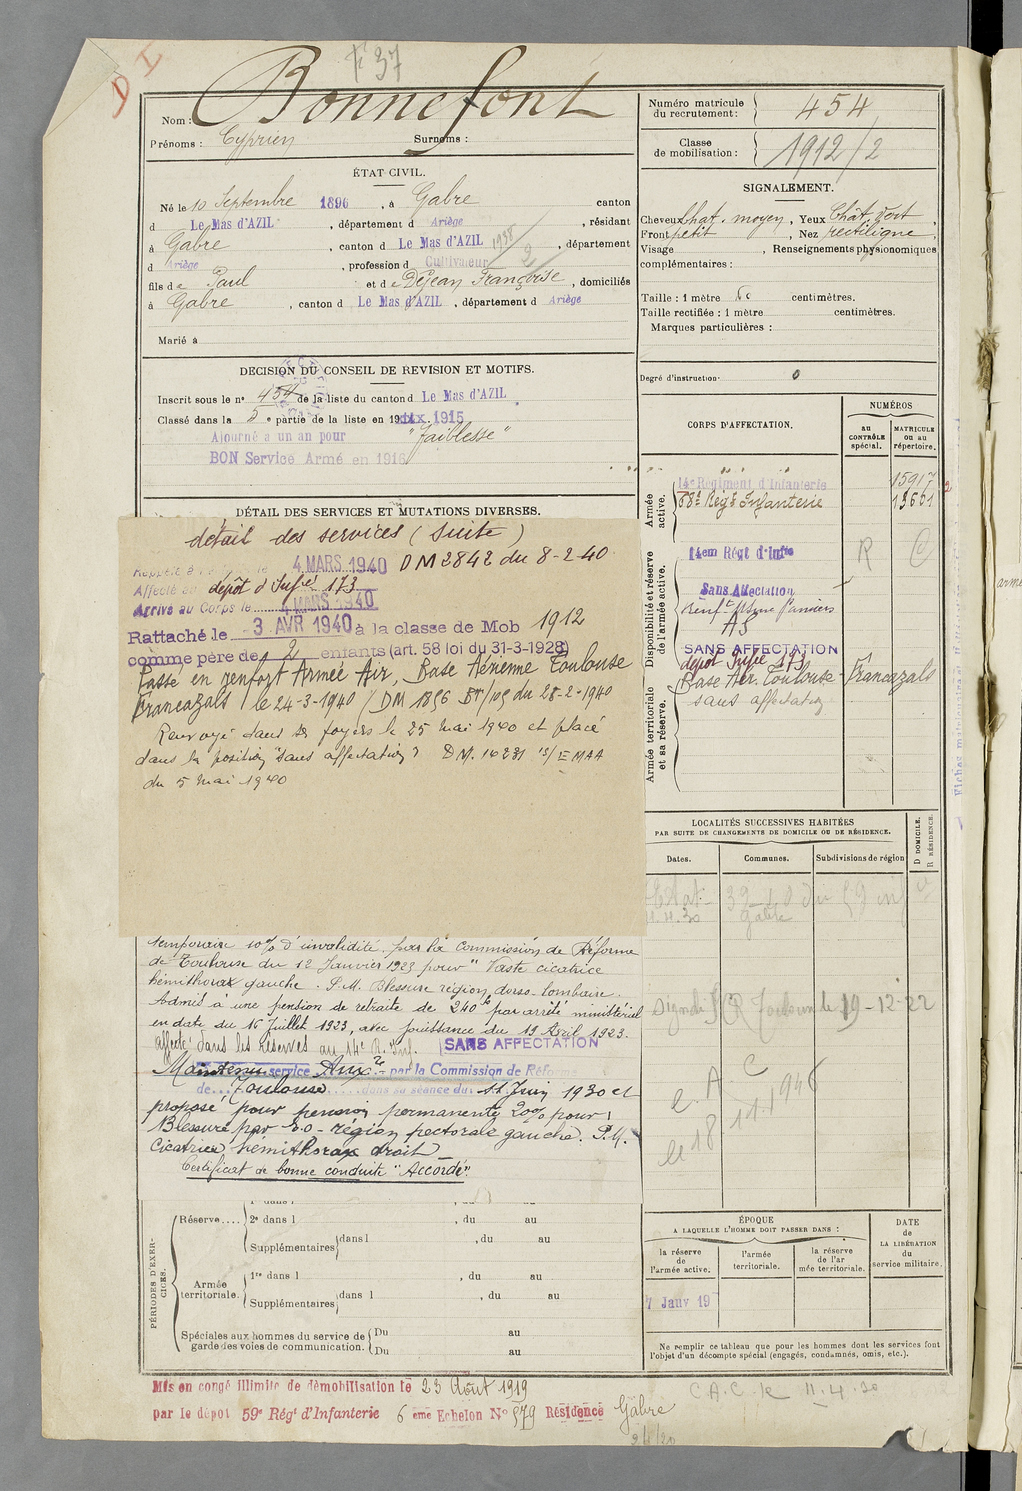 D I
F 37
Nom : Bonnefont
Prénoms : Cyprien Surnoms :
ÉTAT CIVIL.
Né le 10 Septembre 1896, à Gabre canton
d Le Mas d'AZIL, département d Ariège, résidant
à Gabre, canton d Le Mas d'AZIL, département
d Ariège, profession d Cultivateur
fils de Paul et de Dejean Françoise, domiciliés
à Gabre, canton d Le Mas d'AZIL, département d Ariège
Marié à
DECISION DU CONSEIL DE REVISION ET MOTIFS.
Inscrit sous le n° 454 de la liste du canton d Le Mas d'AZIL
Classé dans la 5 e partie de la liste en 1915
Ajourné à un an pour "faiblesse"
BON Service Armé en 1916
DÉTAIL DES SERVICES ET MUTATIONS DIVERSES.
détail des services (suite)
4 MARS 1940 DM 2842 du 8-2-40
Affecté au dépôt d'Inf.ie 173
Arrivé au Corps le 4 MARS 1940
Rattaché le 3 AVR 1940 à la classe de Mob 1912
comme père de 2 enfants (art. 58 loi du 31-3-1928)
Passé en renfort Armée Air, Base Aérienne Toulouse
Francazals le 24-3-1940 / DM 1856 du 28-2-1940
Renvoyé dans ses foyers le 25 mai 1940 et placé
dans la position "sans affectation" DM. 14231 /EMAA
du 5 mai 1940
temporaire 10% d'invalidité par la Commission de Réforme
de Toulouse du 12 Janvier 1923 pour "Vaste cicatrice
hémithorax gauche. P.M. Blessure région dorso-lombaire.
Admis à une pension de retraite de 240 f par arrêté ministériel
en date du 16 Juillet 1923, avec jouissance du 19 Avril 1923.
affecté dans les réserves au 14e R. Inf. SANS AFFECTATION
Maintenu service Aux.re par la Commission de Réforme
de Toulouse dans sa séance du 11 Juin 1930 et
proposé pour pension permanente 20% pour :
Blessure par E.O - région pectorale gauche. P.M.
Cicatrice hémithorax droit
Certificat de bonne conduite "Accordé"
PÉRIODES D'EXERCICES.
Réserve.... 2e dans l , du au
Supplémentaires dans l , du au
Armée territoriale. 1re dans l , du au
Supplémentaires dans l , du au
Spéciales aux hommes du service de garde des voies de communication. Du au
Du au
Mis en congé illimité de démobilisation le 23 Août 1919
par le dépôt 59e Régt d'Infanterie 6 eme Echelon N° 579 Résidence Gabre
Numéro matricule du recrutement : 454
Classe de mobilisation : 1912/2
SIGNALEMENT.
Cheveux Chat. moyen, Yeux Chât. vert,
Front petit, Nez rectiligne,
Visage , Renseignements physionomiques
complémentaires :
Taille : 1 mètre 60 centimètres.
Taille rectifiée : 1 mètre centimètres.
Marques particulières :
Degré d'instruction. 0
CORPS D'AFFECTATION.
NUMÉROS
au CONTRÔLE spécial.
MATRICULE ou au répertoire.
Armée active.
14e Régiment d'Infanterie 15917
68e Régt Infanterie 13661
Disponibilité et réserve de l'armée active.
14em Régt d'Infie R C
Sans Affectation
AS
SANS AFFECTATION
Armée territoriale et sa réserve.
dépôt Infie 173
Base Air. Toulouse-Francazals
sans affectation
LOCALITÉS SUCCESSIVES HABITÉES
PAR SUITE DE CHANGEMENTS DE DOMICILE OU DE RÉSIDENCE.
Dates.
Communes.
Subdivisions de région
D DOMICILE.
R RÉSIDENCE.
11.4.30 Gabre
Toulouse le 19-12-22
C
R. A
le 18 11.1946
ÉPOQUE
A LAQUELLE L'HOMME DOIT PASSER DANS :
la réserve de l'armée active.
l'armée territoriale.
la réserve de l'armée territoriale.
DATE de LA LIBÉRATION du service militaire.
7 Janv 19
Ne remplir ce tableau que pour les hommes dont les services font
l'objet d'un décompte spécial (engagés, condamnés, omis, etc.).
C.A.C. le 11.4.30